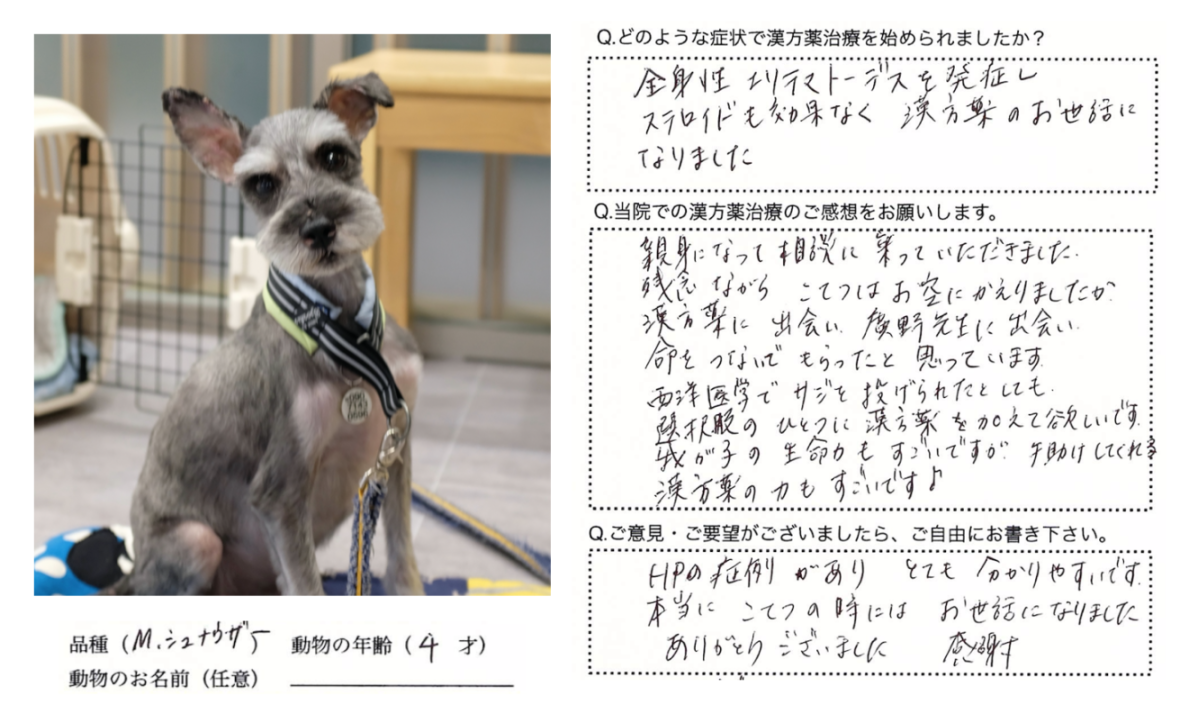 品種（M.シュナウザー 動物の年齢（4 才）
動物のお名前（任意）
Q.どのような症状で漢方薬治療を始められましたか？
全身性 エリテマトーデスを発症し
ステロイドも効果なく 漢方薬のお世話に
なりました
Q.当院での漢方薬治療のご感想をお願いします。
親身になって相談に乗っていただきました.
残念ながら こてつはお空にかえりましたが
漢方薬に出会い. 廣野先生に出会い.
命をつないでもらったと思っています.
西洋医学でサジを投げられたとしても.
選択肢のひとつに漢方薬を加えて欲しいです.
我が子の生命力もすごいですが 手助けしてくれる
漢方薬の力もすごいです♪
Q.ご意見・ご要望がございましたら、ご自由にお書き下さい。
HPの症例があり とても分かりやすいです.
本当に こてつの時には お世話になりました
ありがとうございました 感謝